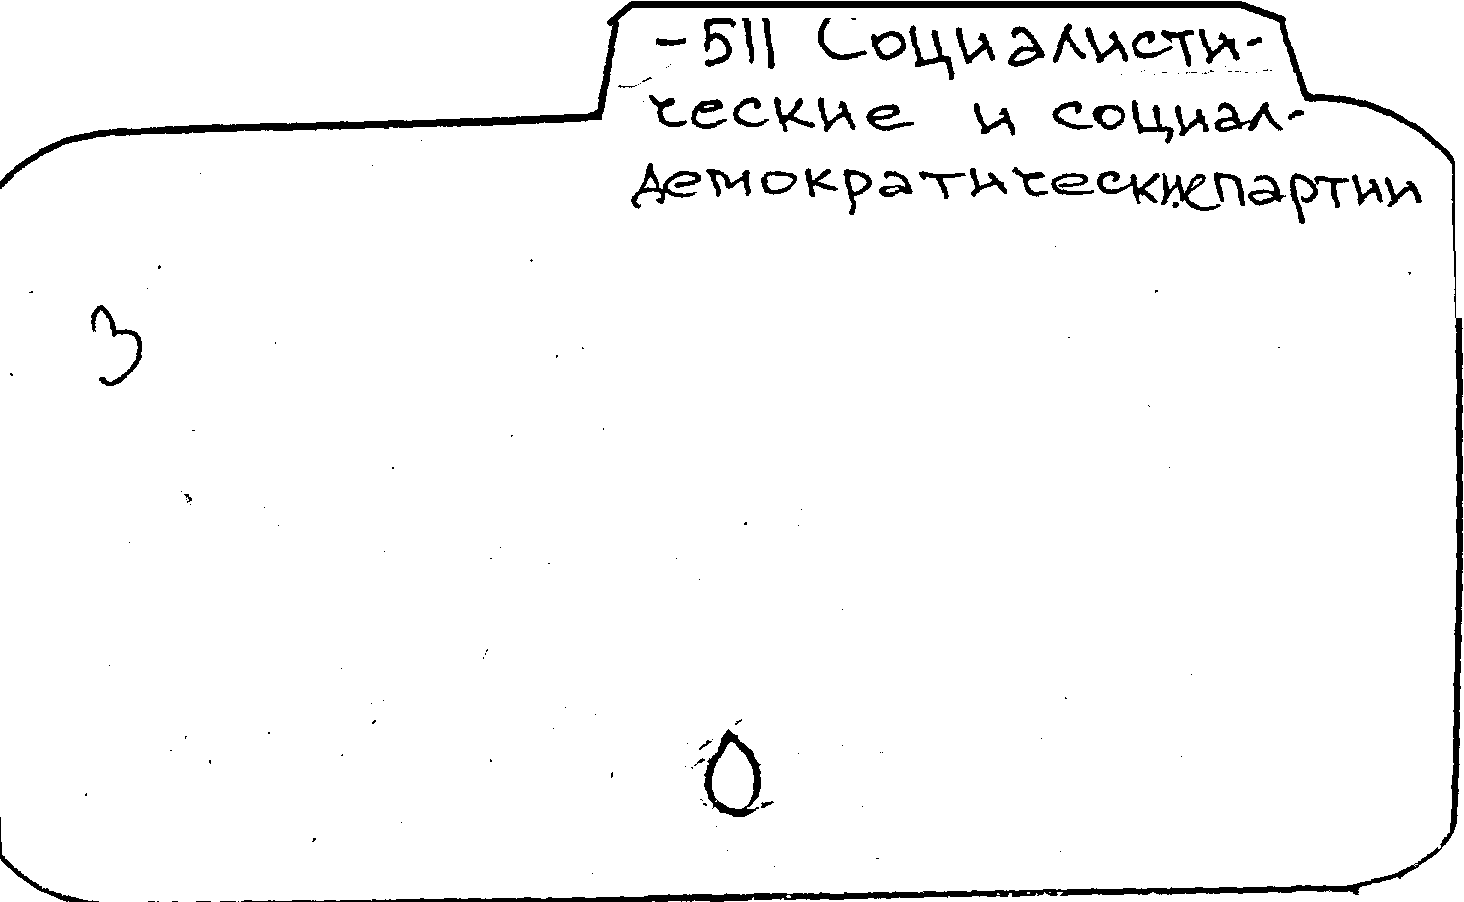 -511 Социалисти-
ческие и социал-
демократические партии
3